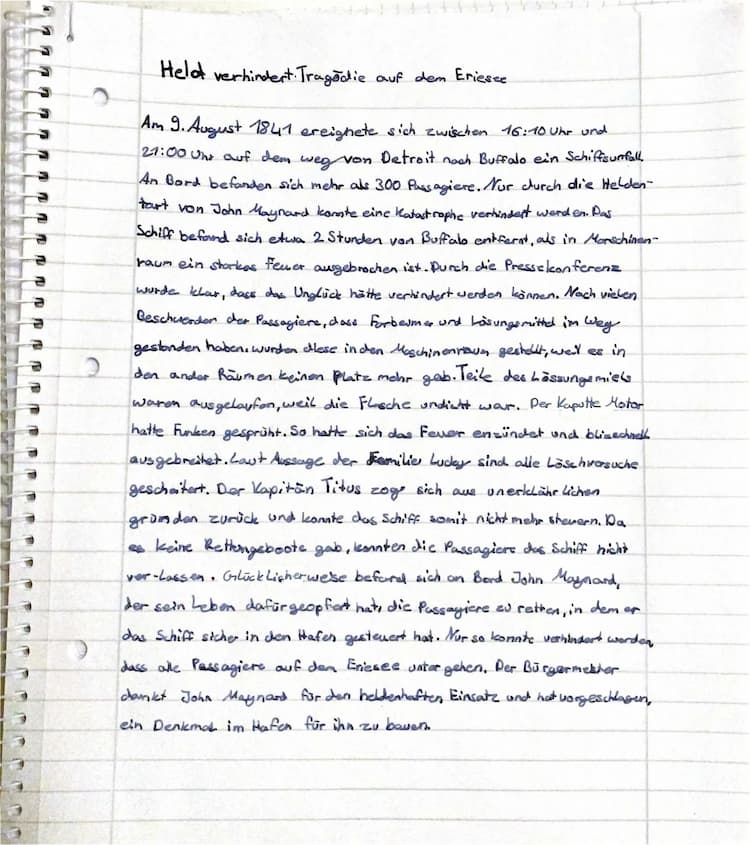 Held verhindert Tragödie auf dem Eriesee
Am 9. August 1841 ereignete sich zwischen 16:10 Uhr und
21:00 Uhr auf dem weg von Detroit nach Buffalo ein Schiffsunfall.
An Bord befanden sich mehr als 300 Passagiere. Nur durch die Helden-
tart von John Maynard konnte eine Katastrophe verhindert werden. Das
Schiff befand sich etwa 2 Stunden von Buffalo entfernt, als in Marschinen-
raum ein starkes Feuer ausgebrochen ist. Durch die Pressekonferenz
wurde klar, dass das Unglück hätte verhindert werden können. Nach vielen
Beschwerden der Passagiere, dass Farbeimer und Lösungsmittel im Weg
gestanden haben, wurden diese in den Maschinenraum gestellt, weil es in
den ander Räumen keinen Platz mehr gab. Teile des Lössungsmiels
waren ausgelaufen, weil die Flasche undicht war. Der Kaputte Motor
hatte Funken gesprüht. So hatte sich das Feuer enzündet und blizschnell
ausgebreitet. Laut Aussage der Familie Lucky sind alle Löschversuche
gescheitert. Der Kapitän Titus zog sich aus unerklährlichen
grümden zurück und konnte das Schiff somit nicht mehr steuern. Da
es keine Rettungsboote gab, konnten die Passagiere das Schiff nicht
ver-lassen. Glücklicherweise befand sich an Bord John Maynard,
der sein Leben dafür geopfert hat, die Passagiere zu retten, in dem er
das Schiff sicher in den Hafen gesteuert hat. Nur so konnte verhindert werden,
dass alle Passagiere auf den Eriesee unter gehen. Der Bürgermeister
dankt John Maynard für den heldenhaften Einsatz und hat vorgeschlagen,
ein Denkmal im Hafen für ihn zu bauen.